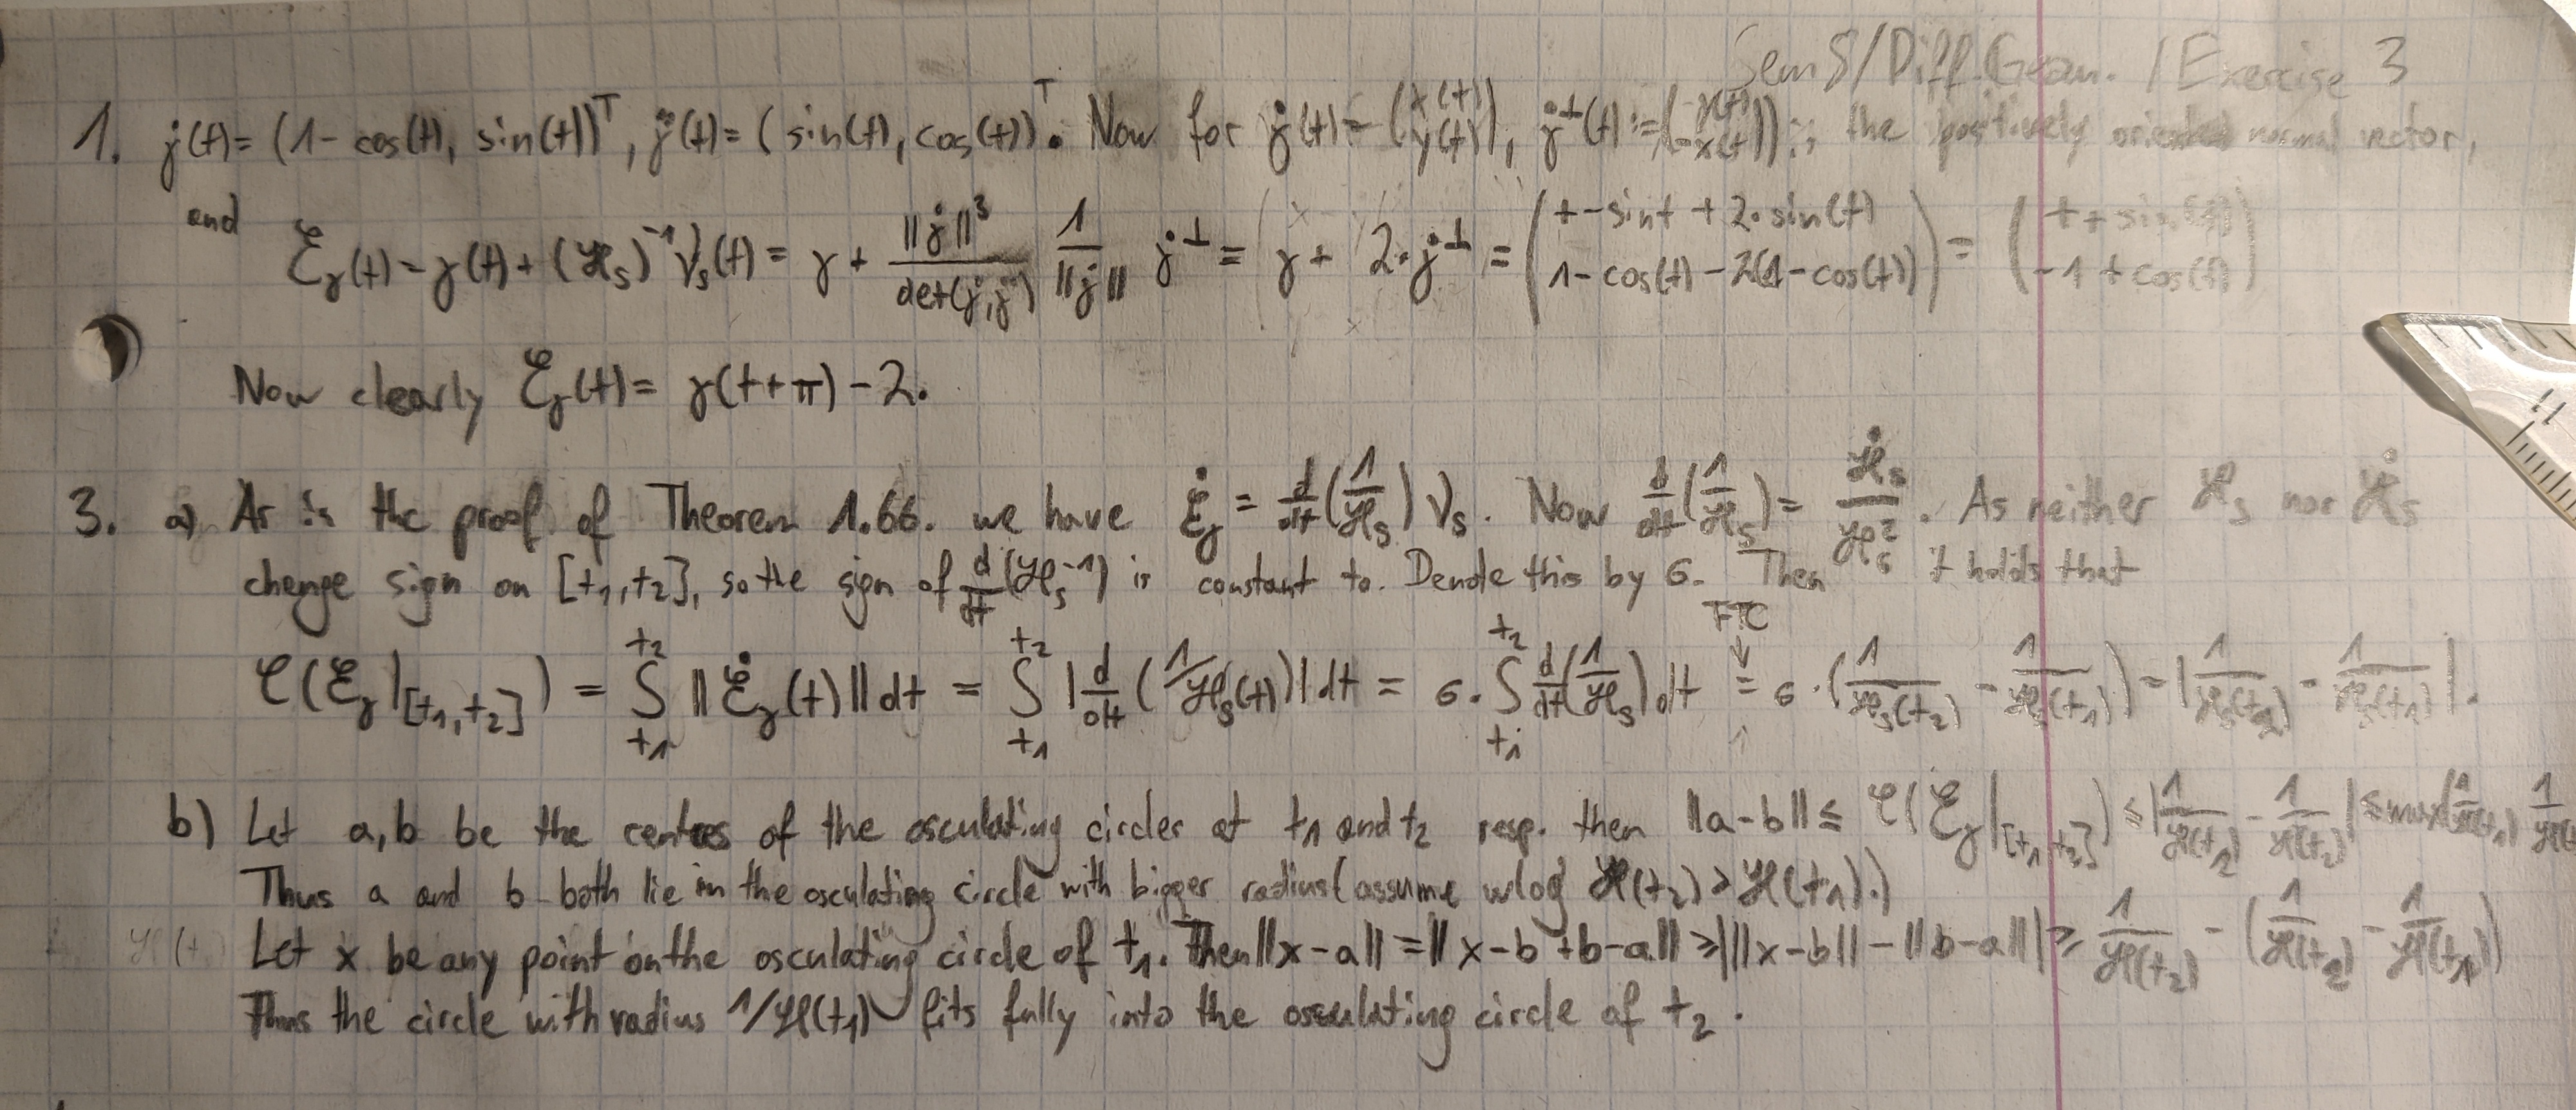 Sem 8/Diff.Geom. /Exercise 3
1. γ̇(t)= (1- cos(t), sin(t))ᵀ, γ̈(t)= ( sin(t), cos(t))ᵀ. Now for γ̇(t)= (x(t) y(t)), γ̇^⊥(t):= the positively oriented normal vector,
and ℰ_γ(t)=γ(t)+(ϰ_s)^-1 ν_s(t)= γ + ||γ̇||³/det(γ̇,γ̈) 1/||γ̇|| γ̇^⊥ = γ + 2·γ̇^⊥ = (t-sint + 2·sin(t) 1-cos(t)-2(1-cos(t))) = (t+sin(t) -1+cos(t))
Now clearly ℰ_γ(t)= γ(t+π)-2.
3. a) As in the proof of Theorem 1.66. we have ℰ̇_γ = d/dt(1/ϰ_s) ν_s. Now d/dt(1/ϰ_s)= ϰ̇_s/ϰ_s². As neither ϰ_s nor ϰ̇_s
change sign on [t₁,t₂], so the sign of d/dt(ϰ_s^-1) is constant to. Denote this by σ. Then it holds that
FTC
ℒ(ℰ_γ|[t₁,t₂]) = ∫_t₁^t₂ ||ℰ̇_γ(t)||dt = ∫_t₁^t₂ |d/dt (1/ϰ_s(t))|dt = σ·∫_t₁^t₂ d/dt(1/ϰ_s)dt = σ·(1/ϰ_s(t₂) - 1/ϰ_s(t₁)) = |1/ϰ_s(t₂) - 1/ϰ_s(t₁)|.
b) Let a,b be the centres of the osculating circles at t₁ and t₂ resp. then ||a-b|| ≤ ℒ(ℰ_γ|[t₁,t₂]) ≤ |1/ϰ(t₁) - 1/ϰ(t₂)| ≤ max
Thus a and b both lie in the osculating circle with bigger radius (assume wlog ϰ(t₂)>ϰ(t₁).)
Let x be any point on the osculating circle of t₁. Then ||x-a|| = ||x-b+b-a|| ≥ |||x-b||-||b-a||| ≥ 1/ϰ(t₂) - (1/ϰ(t₂) - 1/ϰ(t₁))
Thus the circle with radius 1/ϰ(t₁) fits fully into the osculating circle of t₂.